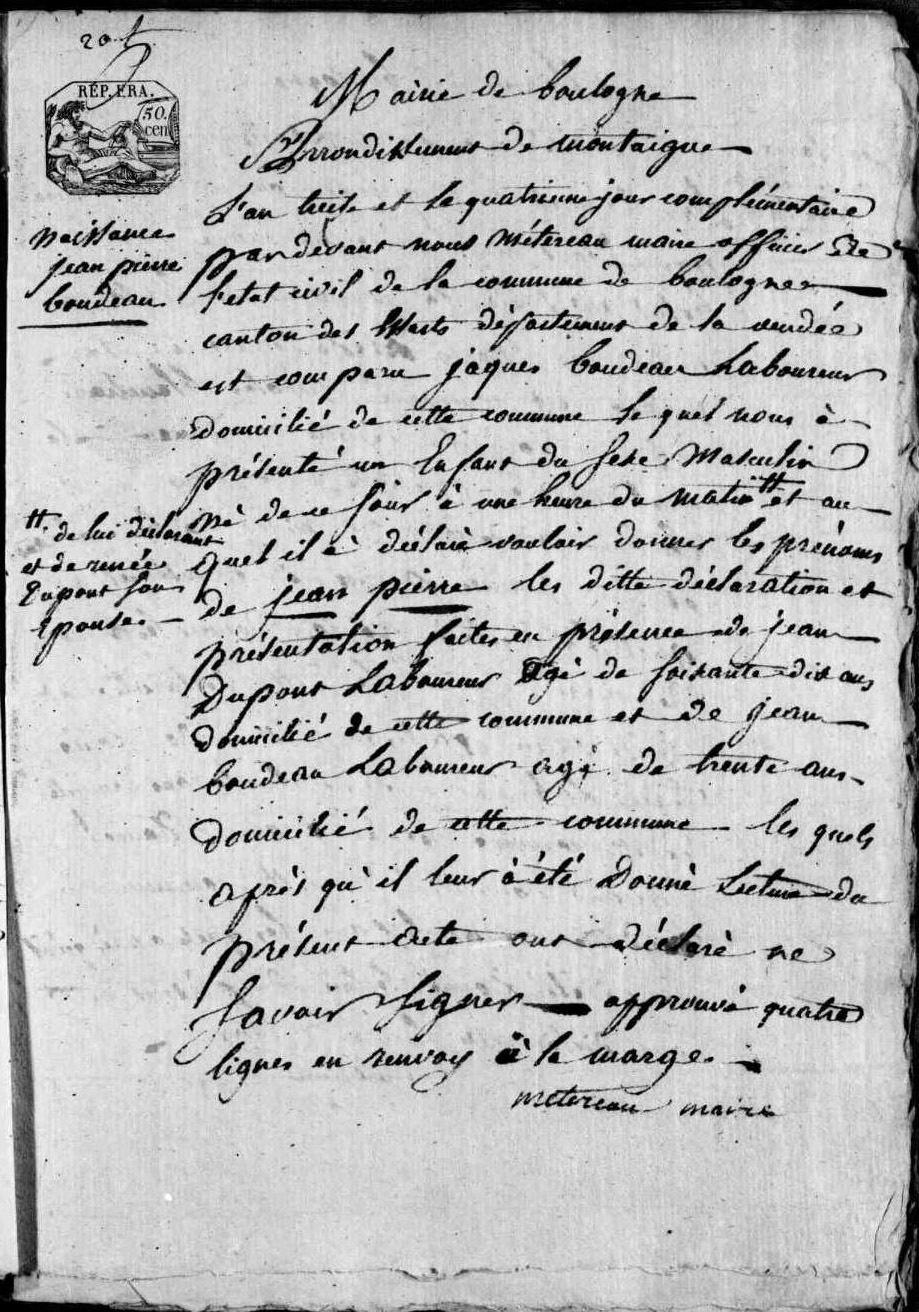 20 f
REP. FRA.
50.
cen
Mairie de boulogne
Arrondissement de montaigue
L'an treise et le quatrieme jour complémentaire
par devant nous Métereau maire officier de
l'etat civil de la commune de boulogne
canton des Essarts département de la vendée
est comparu jaques boudeau Laboureur
domicilié de cette commune le quel nous à
présenté un Enfant du sexe Masculin
né de ce jour à une heure du matin # et au
quel il à déclaré vouloir donner les prénoms
de jean pierre les ditte déclaration et
présentation faites en présence de jean
Dupont Laboureur agé de soixante dix ans
domicilié de cette commune et de jean
boudeau Laboureur agé de trente ans
domicilié de cette commune les quels
après qu'il leur à été Donné Lecture du
présent acte ont déclaré ne
savoir signer approuvé quatre
lignes en renvoy à la marge
metereau maire
Naissance
jean pierre
boudeau
#. de lui déclarant
et de renée
Dupont son
Epouse